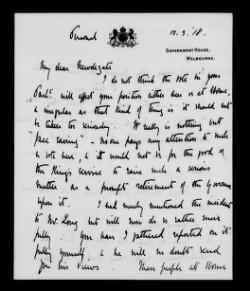 Personal
12.3.18.
GOVERNMENT HOUSE,
MELBOURNE.
My dear Newdegate
I do not think the vote in your
Parlt. will affect your position either here or at Home,
& irregular as that kind of thing is it should not
be taken too seriously. It really is nothing but
"free" - no one pays any attention to such
a vote here, & it would not be for the good of
the King's service to raise such a serious
matter as a prompt retirement of the Governor
upon it. I had merely mentioned the incident
to Mr Long but will now do so rather more
fully. You have I gathered reported on it
fully yourself & he will no doubt send
you his views. These people at Home